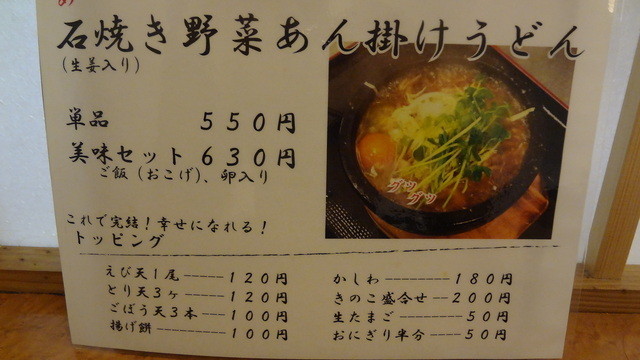 石焼き野菜あん掛けうどん
(生姜入り)
単品 550円
美味セット 630円
ご飯(おこげ)、卵入り
グツ
グツ
これで完結!幸せになれる!
トッピング
えび天1尾-----120円
とり天3ヶ-----120円
ごぼう天3本----100円
揚げ餅--------100円
かしわ--------180円
きのこ盛合せ--200円
生たまご------50円
おにぎり半分---50円